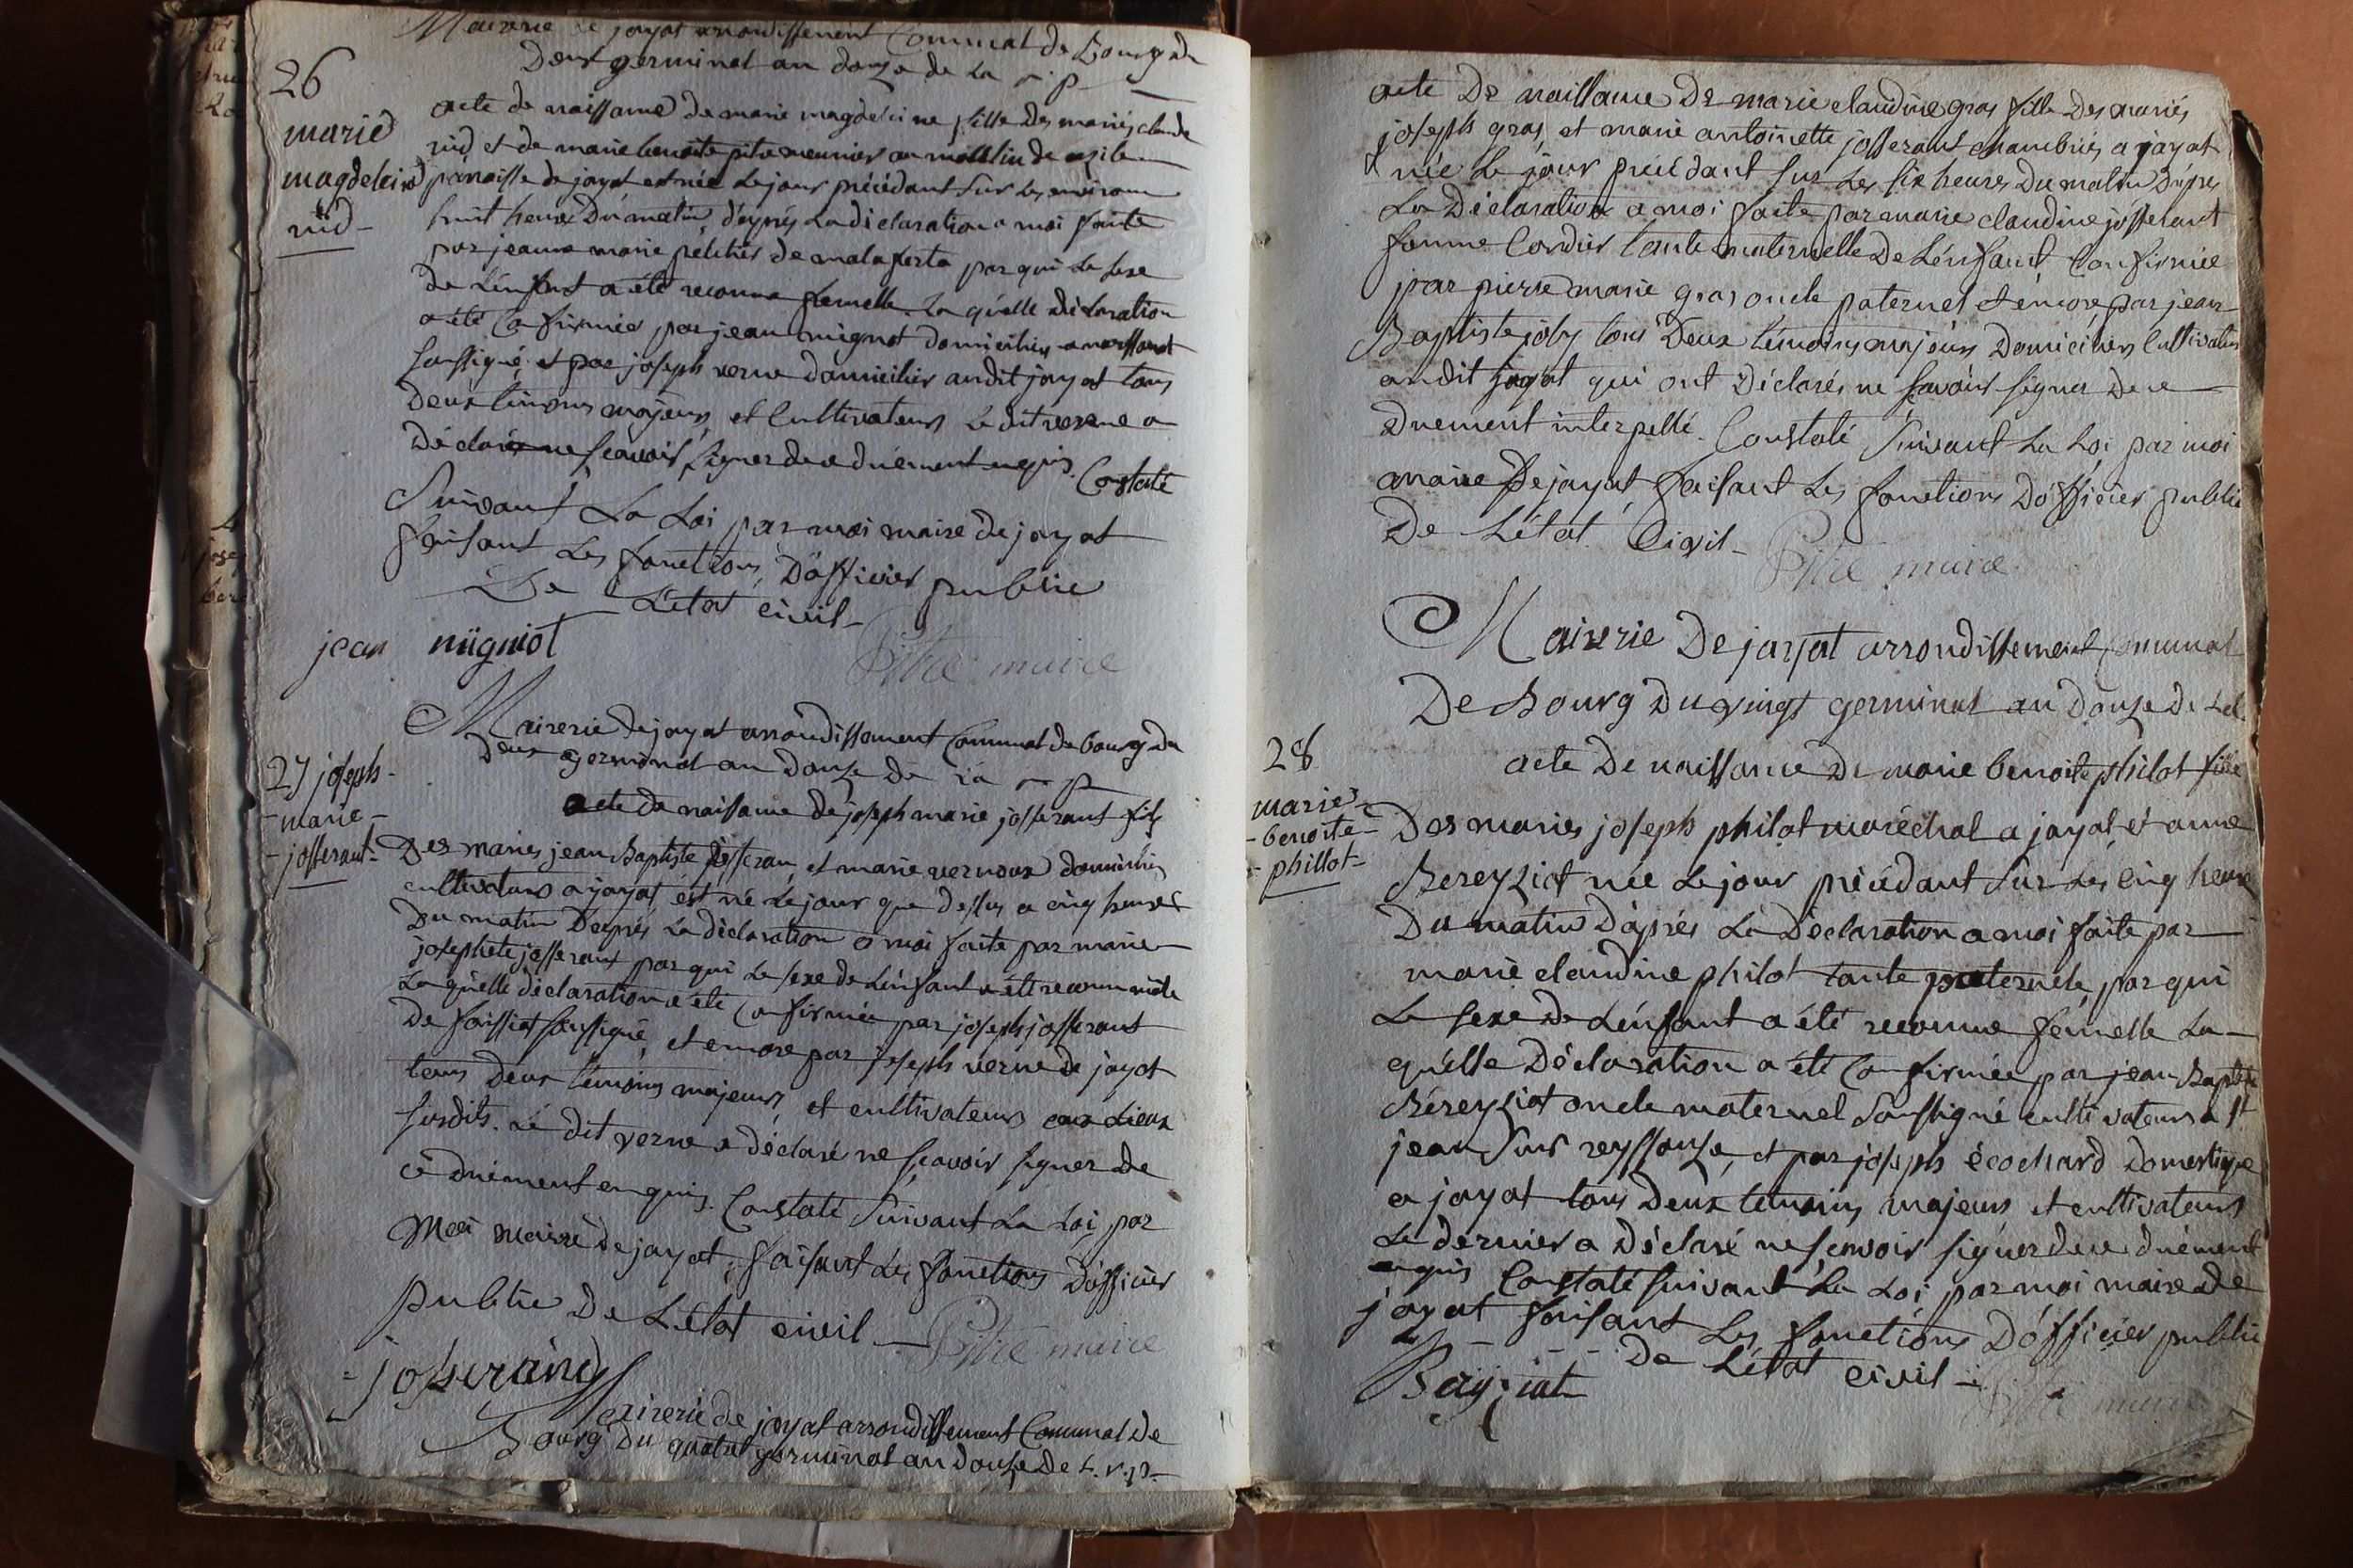 Mairerie de jayat arrondissement Communal de Bourg du
Deux germinal an douze de la r. p.
26
marie
magdeleine
nid
acte de naissance de marie magdeleine fille des mariés claude
nid et de marie benoite pitre meunier au moullin de
paroisse de jayat est née Le jour précédant sur les environ
huit heure Du matin, d'après La déclaration a moi faite
par jeanne marie peletier de malaferta par qui Le sexe
de L'enfant a été reconnu femelle. La quelle déclaration
a été Confirmée par jean mignot domicilier a
soussigné, et par joseph verne domicilier audit jayat tous
Deux témoins majeurs, et Cultivateurs Le dit verne a
Déclaré ne sçavoir signer de ce duement enquis. Constaté
Suivant La Loi par moi maire de jayat
faisant Les fonctions D'officier public
De L'état civil -
jean miigniot
Pitre maire
Mairerie de jayat arrondissement Communal de bourg du
Deux germinal an douze de la r p
27 joseph-
- marie -
- josserant -
acte de naissance de joseph marie josserant fils
Des mariés jean Baptiste josseran, et marie vernoux domiciliés
cultivateurs a jayat est né Le jour que dessus a cinq heures
Du matin Daprès La déclaration a moi faite par marie
josephete josserant par qui Le sexe de L'enfant a été reconnu mâle
La quelle déclaration a été Confirmée par joseph josserant
De foissiat soussigné, et encore par joseph verne de jayat
tous Deux témoins majeurs, et cultivateurs aux Lieux
susdits. Le dit verne a déclaré ne sçavoir signer de
ce duement enquis. Constaté Suivant La Loi, par
Moi maire de jayat, faisant Les fonctions D'officier
public De L'état civil -
Pitre maire
= josserand
Mairerie de jayat arrondissement Communal De
Bourg Du quatre germinal an douze De L. r. p.
acte De naissance De marie claudine gros fille Des mariés
joseph gros, et marie antoinette josserant chambriés a jayat
née Le jour précédant sur Les six heures Du matin D'après
La Déclaration a moi faite par marie claudine josserant
femme Cordier tante maternelle De L'enfant, Confirmée
par pierre marie gros oncle paternel et encore par jean
Baptiste joly tous Deux témoins majeurs Domiciliers Cultivateurs
audit jayat qui ont Déclarés ne savoir signer De ce
Duement interpellé. Constaté Suivant La Loi par moi
maire De jayat, faisant Les fonctions D'officier public
De L'état Civil -
Pitre maire
Mairerie De jayat arrondissement Communal
De Bourg Du vingt germinal an Douze De La
28
marie
- benoite -
- phillot -
acte De naissance De marie benoite philot fille
Des mariés joseph philot maréchal a jayat, et anne
Bereyziat née Le jour précédant sur Les cinq heures
Du matin D'après La Déclaration a moi faite par
marie claudine philot tante paternele, par qui
Le sexe De L'enfant a été reconnu femelle La
quelle Déclaration a été Confirmée par jean Baptiste
Béreyziat oncle maternel Soussigné cultivateur a St
jean Sur reyssouze, et par joseph écochard Domestique
a jayat tous Deux temoins majeurs et cultivateurs
Le dernier a Déclaré ne scavoir signer de ce duement
enquis Constaté suivant La Loi par moi maire De
jayat faisant Les fonctions D'officier public
De L'état civil -
Pitre maire